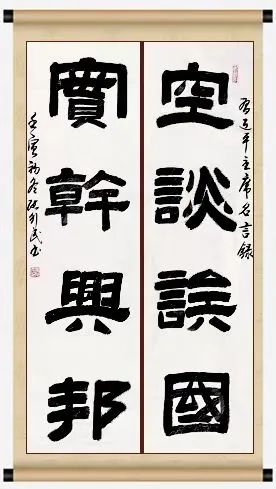 习近平主席名言録
空談誤國
實幹興邦
壬寅初冬